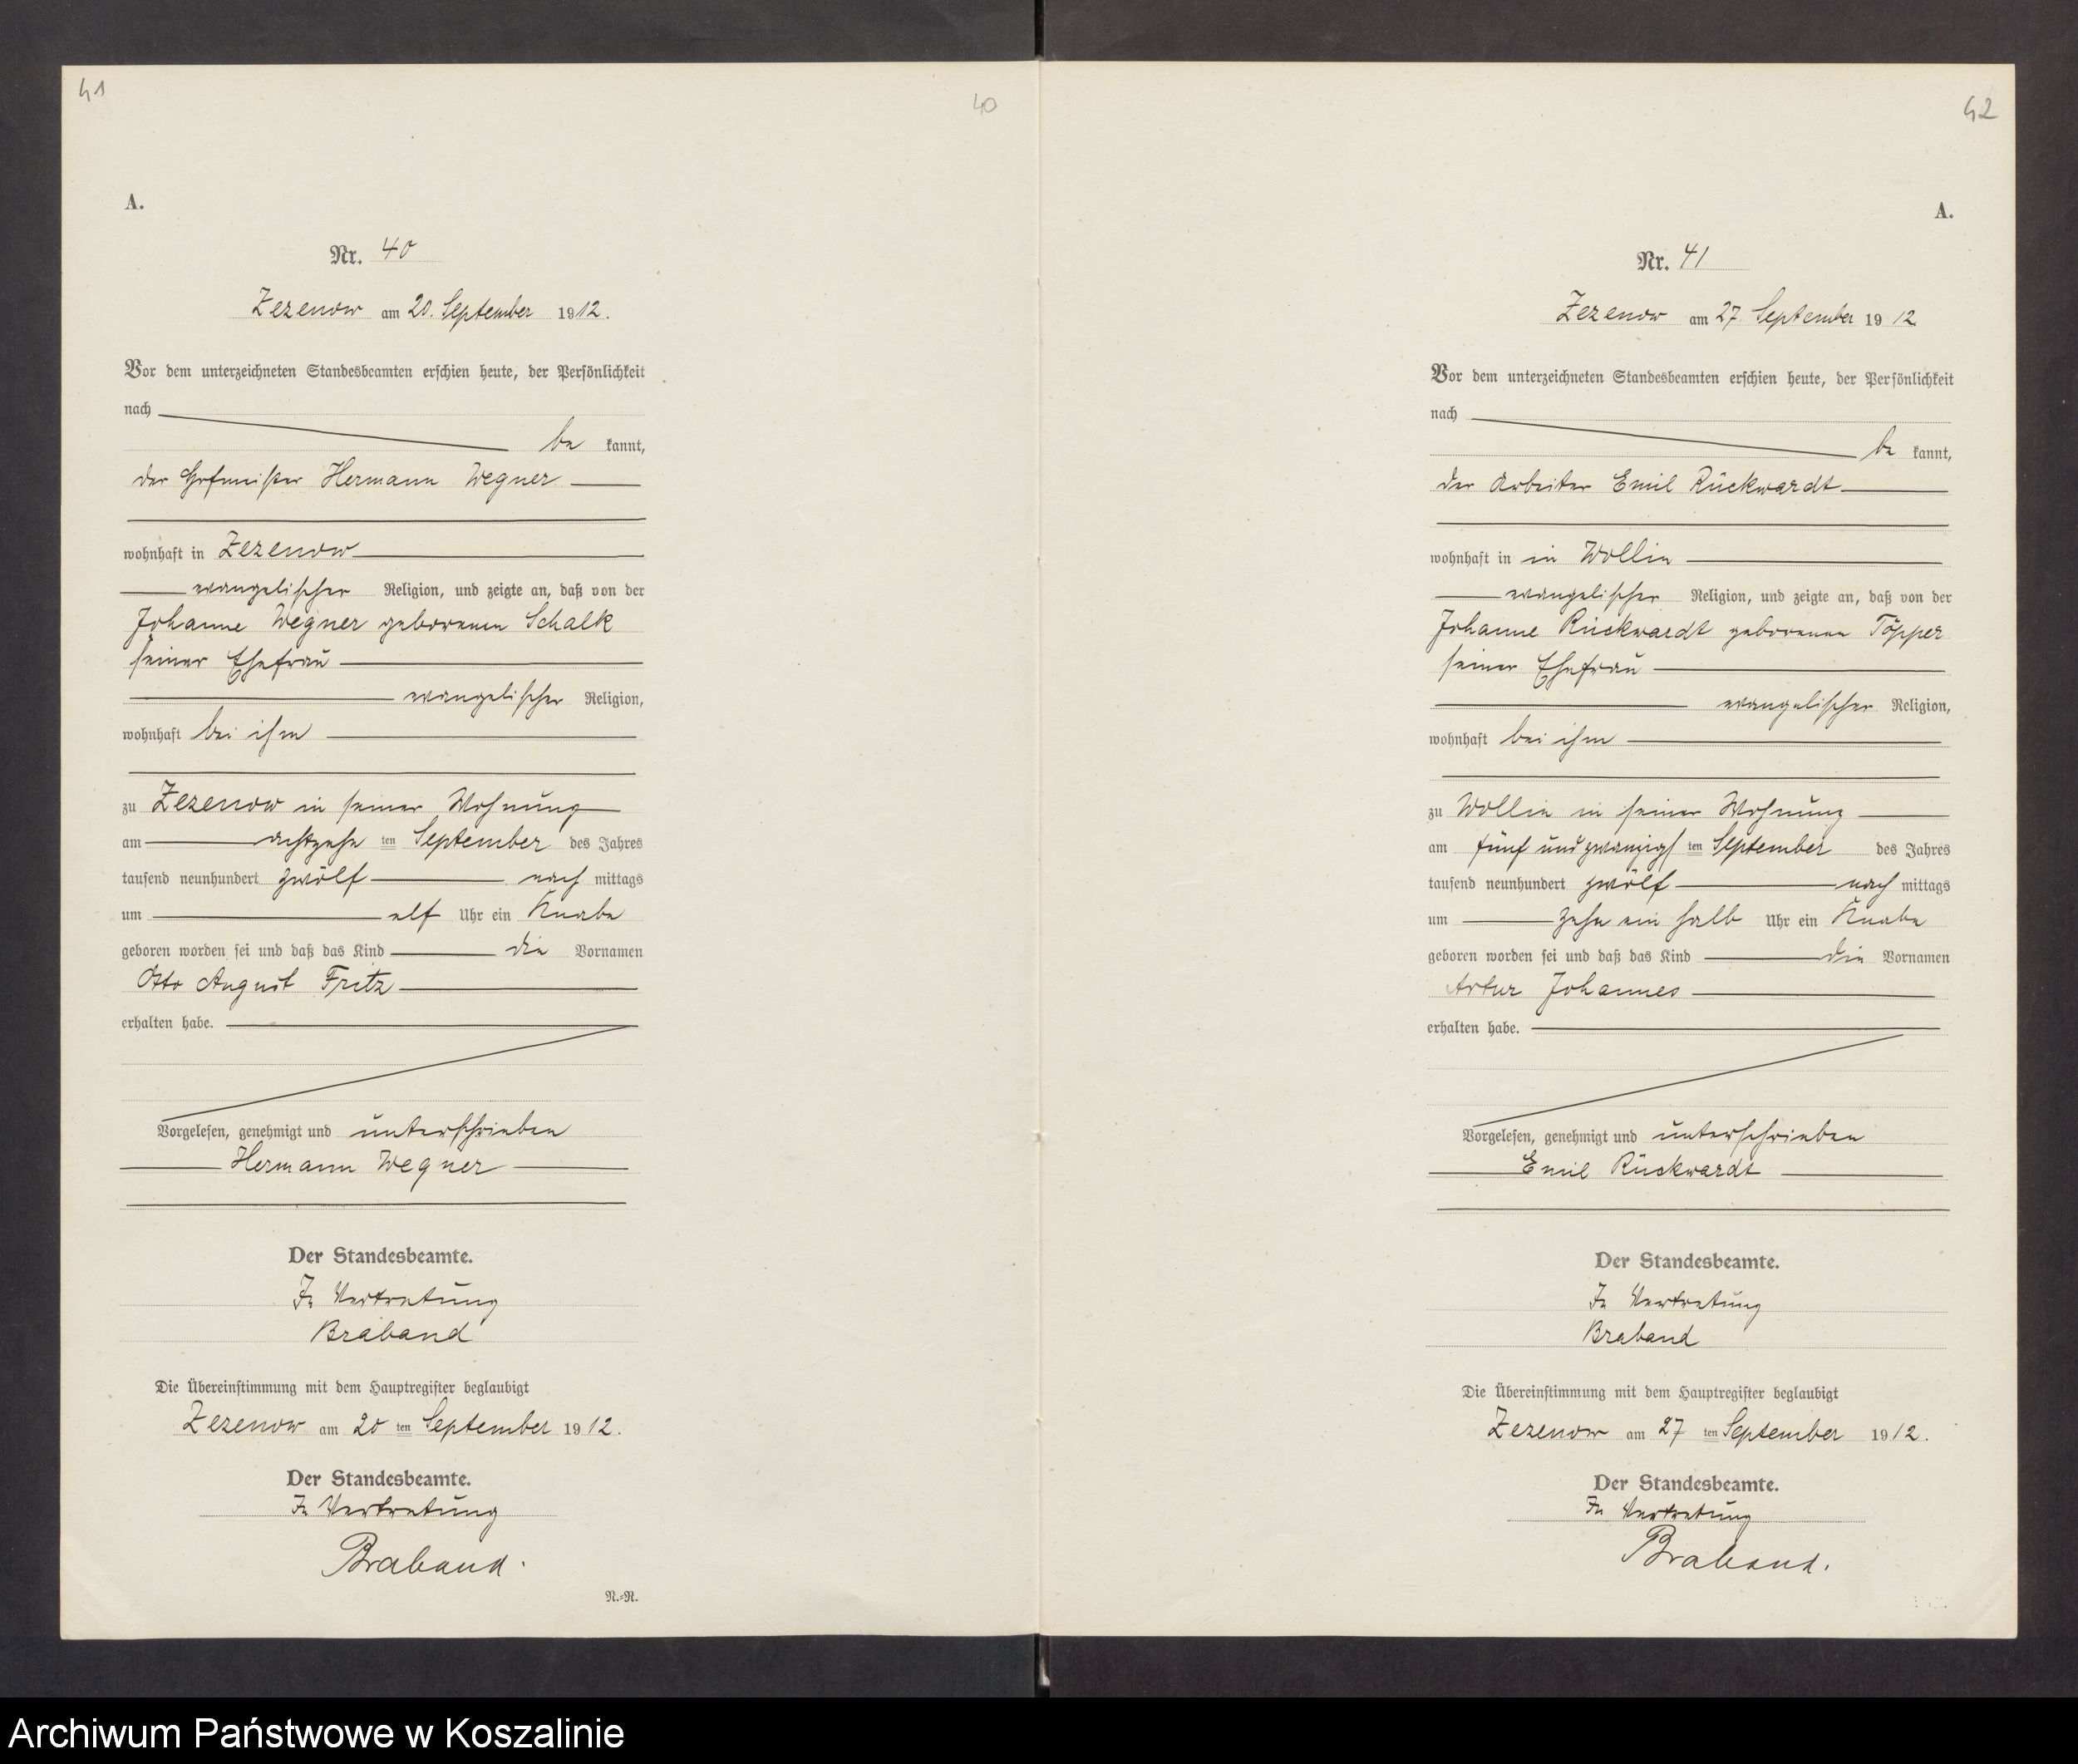 41
40
A.
Nr. 40
Zezenow am 20. September 1912.
Vor dem unterzeichneten Standesbeamten erschien heute, der Persönlichkeit
nach
be kannt,
der Hofmeister Hermann Wegner
wohnhaft in Zezenow
evangelischer Religion, und zeigte an, daß von der
Johanne Wegner geborenen Schalk
seiner Ehefrau
evangelischer Religion,
wohnhaft bei ihm
zu Zezenow in seiner Wohnung
am achtzehn ten September des Jahres
tausend neunhundert zwölf nach mittags
um elf Uhr ein Knabe
geboren worden sei und daß das Kind die Vornamen
Otto August Fritz
erhalten habe.
Vorgelesen, genehmigt und unterschrieben
Hermann Wegner
Der Standesbeamte.
In Vertretung
Braband
Die Übereinstimmung mit dem Hauptregister beglaubigt
Zezenow am 20 ten September 1912.
Der Standesbeamte.
In Vertretung
Braband.
N.=N.
42
A.
Nr. 41
Zezenow am 27. September 1912
Vor dem unterzeichneten Standesbeamten erschien heute, der Persönlichkeit
nach
be kannt,
der Arbeiter Emil Rückwardt
wohnhaft in in Wollin
evangelischer Religion, und zeigte an, daß von der
Johanne Rückwardt geborenen Töpper
seiner Ehefrau
evangelischer Religion,
wohnhaft bei ihm
zu Wollin in seiner Wohnung
am fünf und zwanzigs ten September des Jahres
tausend neunhundert zwölf nach mittags
um zehn ein halb Uhr ein Knabe
geboren worden sei und daß das Kind die Vornamen
Artur Johannes
erhalten habe.
Vorgelesen, genehmigt und unterschrieben
Emil Rückwardt
Der Standesbeamte.
In Vertretung
Braband
Die Übereinstimmung mit dem Hauptregister beglaubigt
Zezenow am 27 ten September 1912.
Der Standesbeamte.
In Vertretung
Braband.
Archiwum Państwowe w Koszalinie